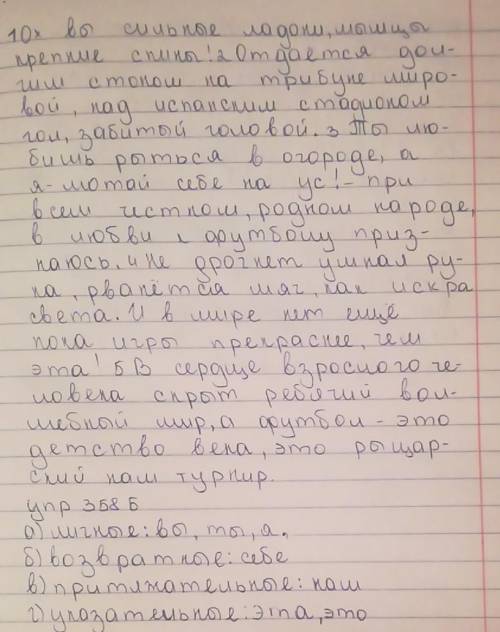 10х вы сильные ладони, мышцы
крепкие спины! 2 Отдается дол-
гим стоном на трибуне миро-
вой, над испанским стадионом
гол, забитый головой. 3 Ты лю-
бишь рыться в огороде, а
я - мотай себе на ус! - при
всем честном, родном народе,
в любви к футболу приз-
наюсь. 4 Не дрогнет умная ру-
ка, рванётся мяч, как искра
света. И в мире нет ещё
пока игры прекрасне, чем
эта! 5 В сердце взрослого че-
ловека скрыт ребячий вол-
шебный мир, а футбол - это
детство века, это рыцар-
ский наш турнир.
упр 358 б
а) личные: вы, ты, я,
б) возвратные: себе
в) притяжательные: наш
г) указательные: эта, это